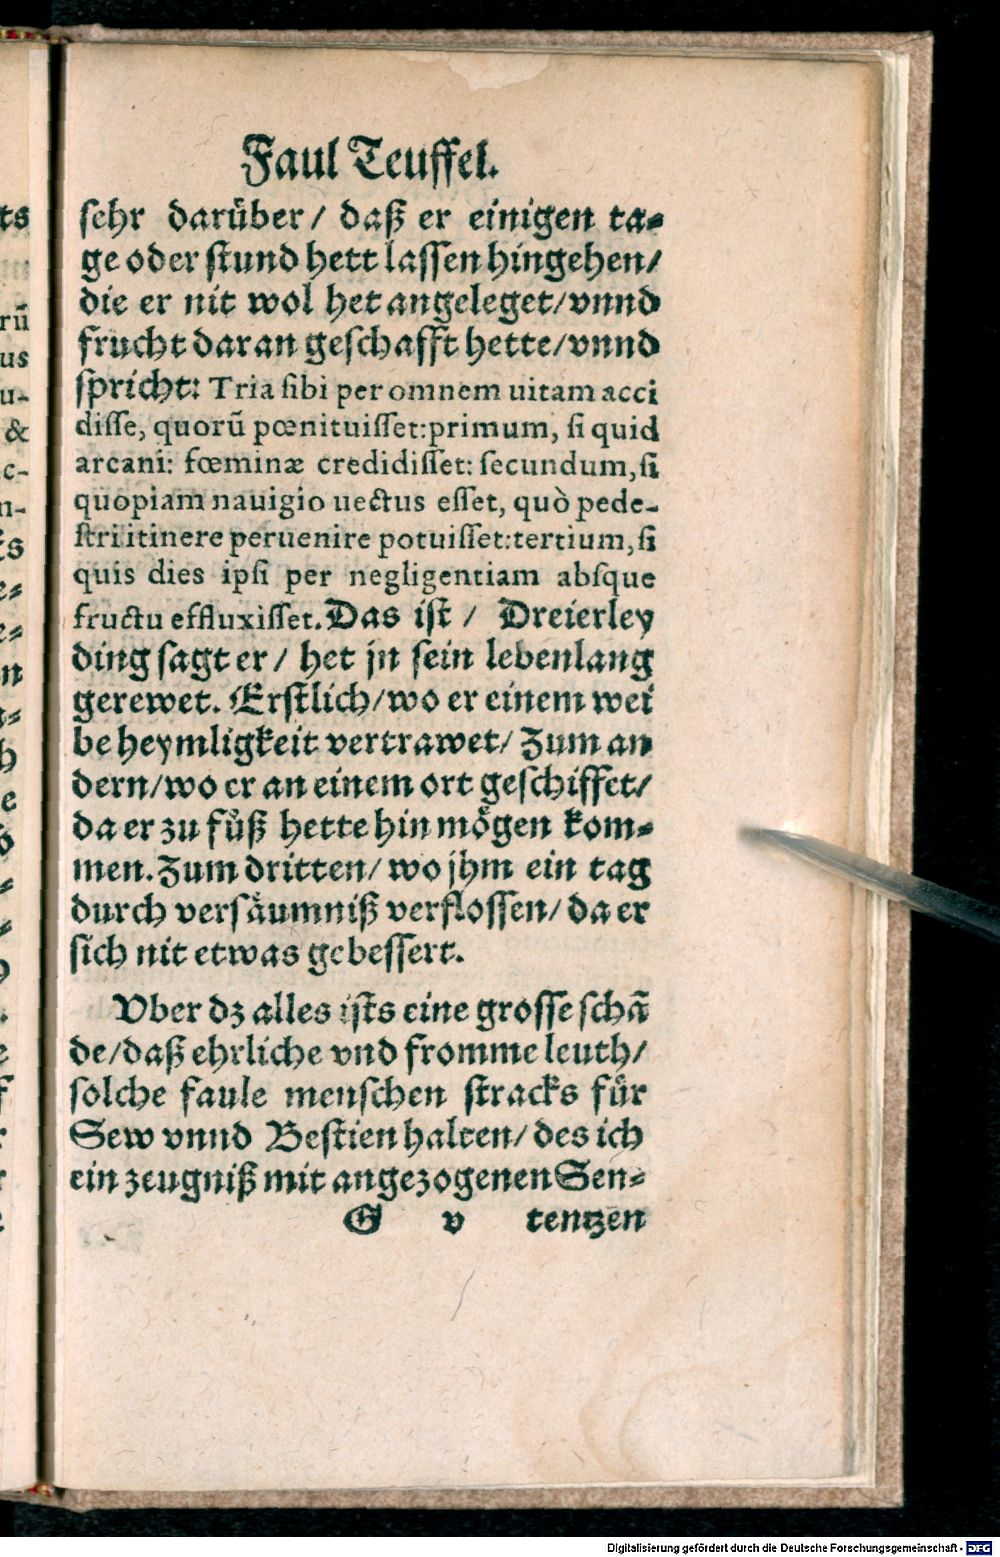 Faul Teuffel.
sehr darüber / daß er einigen ta⸗
ge oder stund hett lassen hingehen/
die er nit wol het angeleget/vnnd
frucht daran geschafft hette/vnnd
spricht: Tria sibi per omnem uitam acci
disse, quorū pœnituisset:primum, si quid
arcani: fœminæ credidisset: secundum, si
quopiam nauigio uectus esset, quò pede-
stri itinere peruenire potuisset:tertium, si
quis dies ipsi per negligentiam absque
fructu effluxisset. Das ist / Dreierley
ding sagt er / het jn sein lebenlang
gerewet. Erstlich/wo er einem wei
be heymligkeit vertrawet/ Zum an
dern/wo er an einem ort geschiffet/
da er zu fůß hette hin mögen kom⸗
men. Zum dritten/ wo jhm ein tag
durch versäumniß verflossen/ da er
sich nit etwas gebessert.
Vber dz alles ists eine grosse schā
de/daß ehrliche vnd fromme leuth/
solche faule menschen stracks für
Sew vnnd Bestien halten/ des ich
ein zeugniß mit angezogenen Sen⸗
G v tentzen
ts
rū
us
u-
&
c-
n-
Digitalisierung gefördert durch die Deutsche Forschungsgemeinschaft - DFG